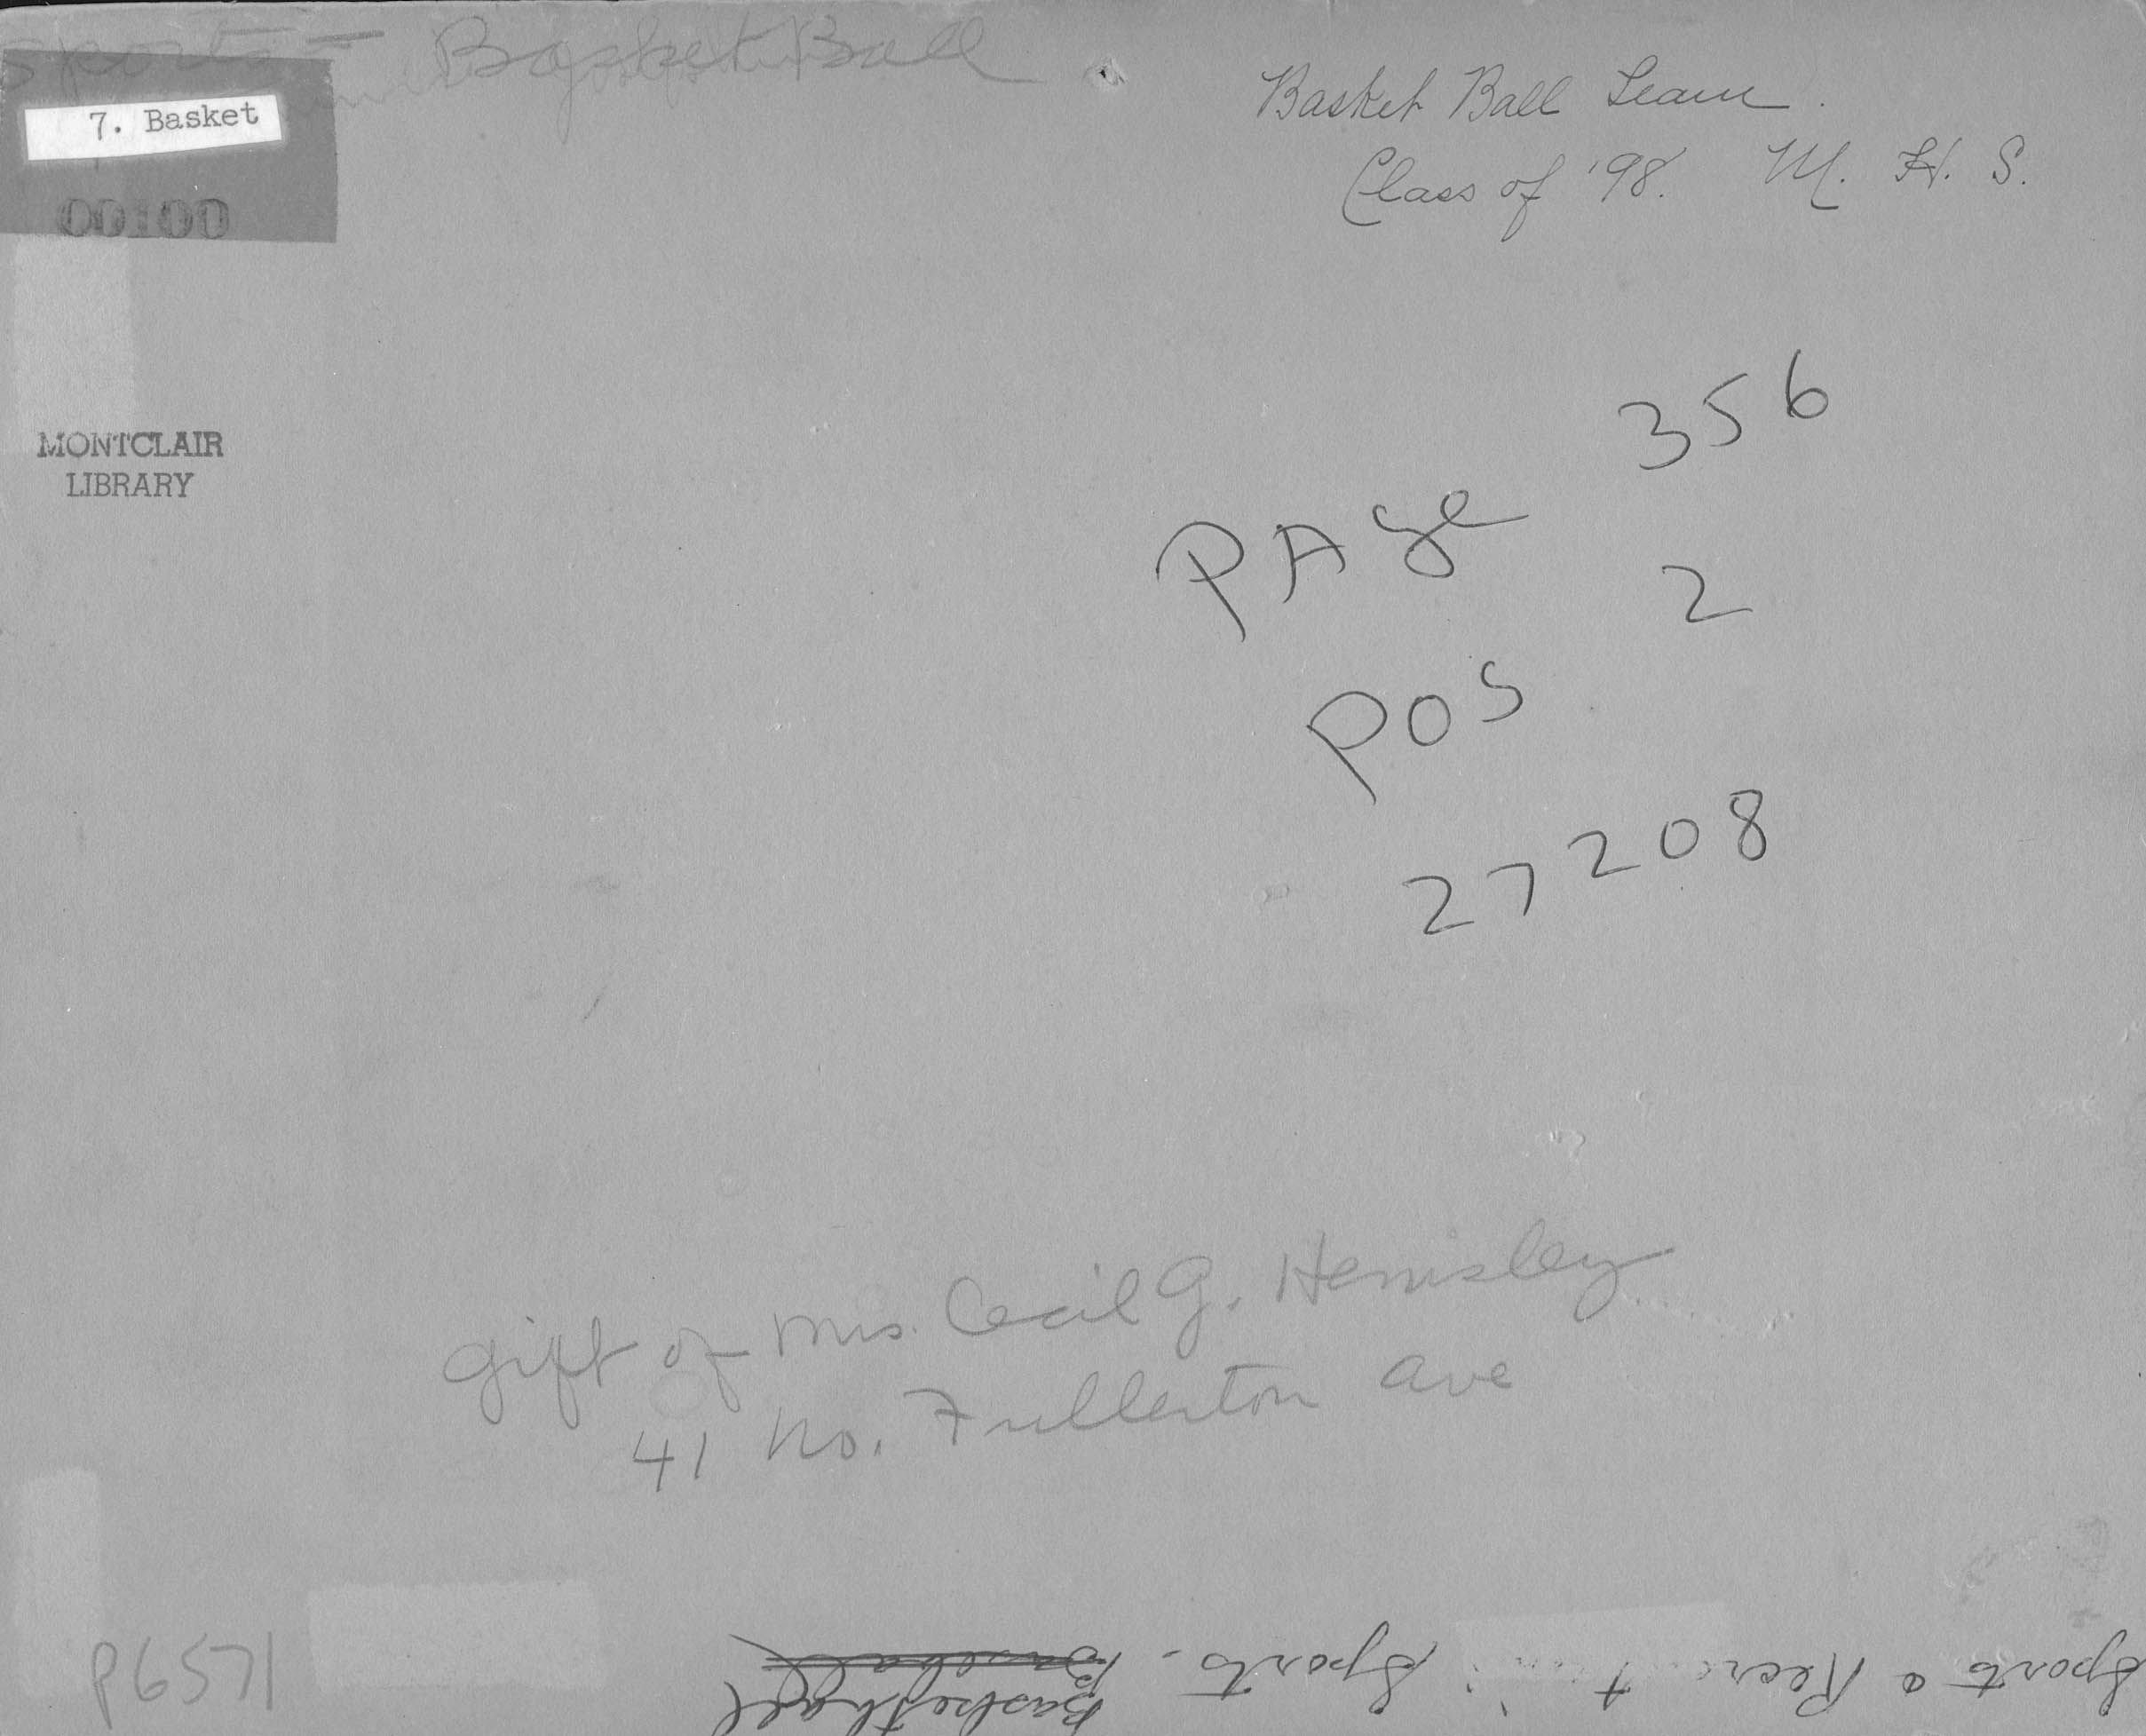 Sports - Basket Ball
7. Basket
00100
MONTCLAIR
LIBRARY
Basket Ball Team.
Class of '98. M. H. S.
356
PAge
2
POS
27208
Gift of Mrs. Cecil G. Hemsley
41 No. Fullerton Ave
P6571
Sports & Recr Sports - Baseball
Basketball